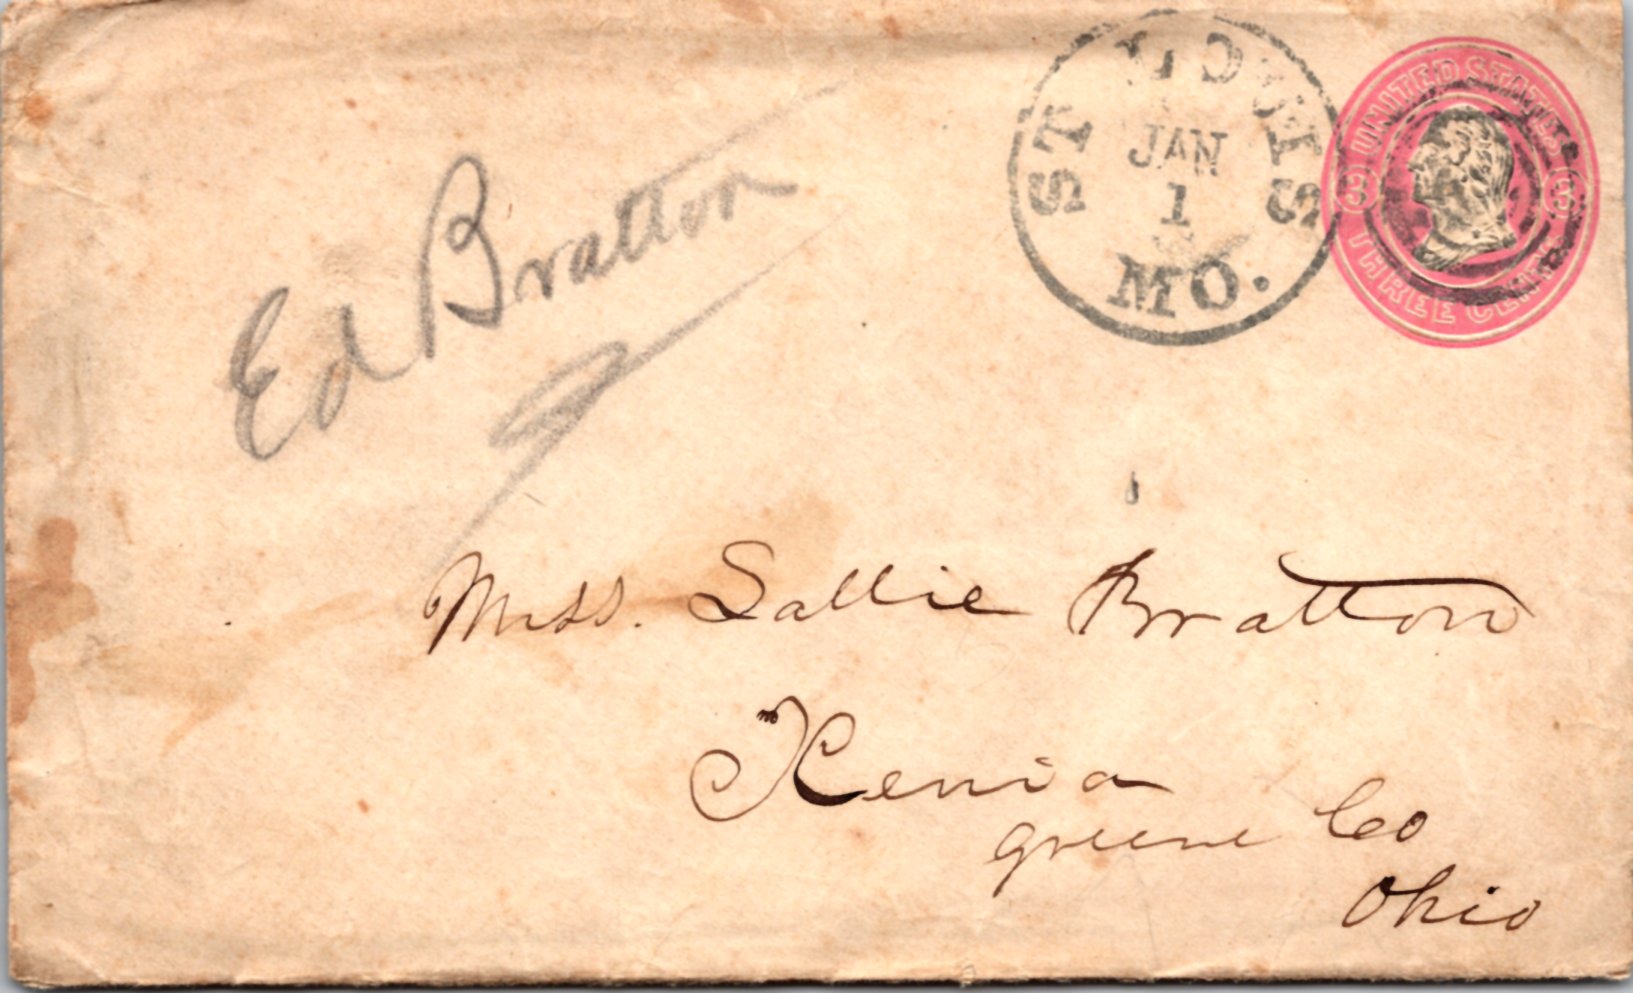 ST LOUIS
JAN
1
MO.
UNITED STATES
3 3
THREE CENTS
Ed Bratton
Miss. Sallie Bratton
Xenia
Greene Co
Ohio